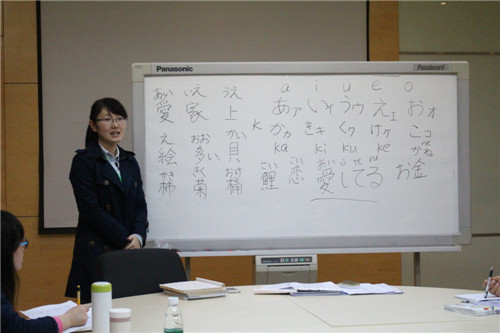 Panasonic
Panaboard
a i u e o
あい いえ うえ
愛 家 上 あァ いイ うウ えエ おオ
K かカ きキ くク けケ こコ
え おお かい
絵 多い 貝 ka ki ku ke
かき きく おけ こい こい あい te ru かね
柿 菊 桶 鯉 恋 愛してる お金